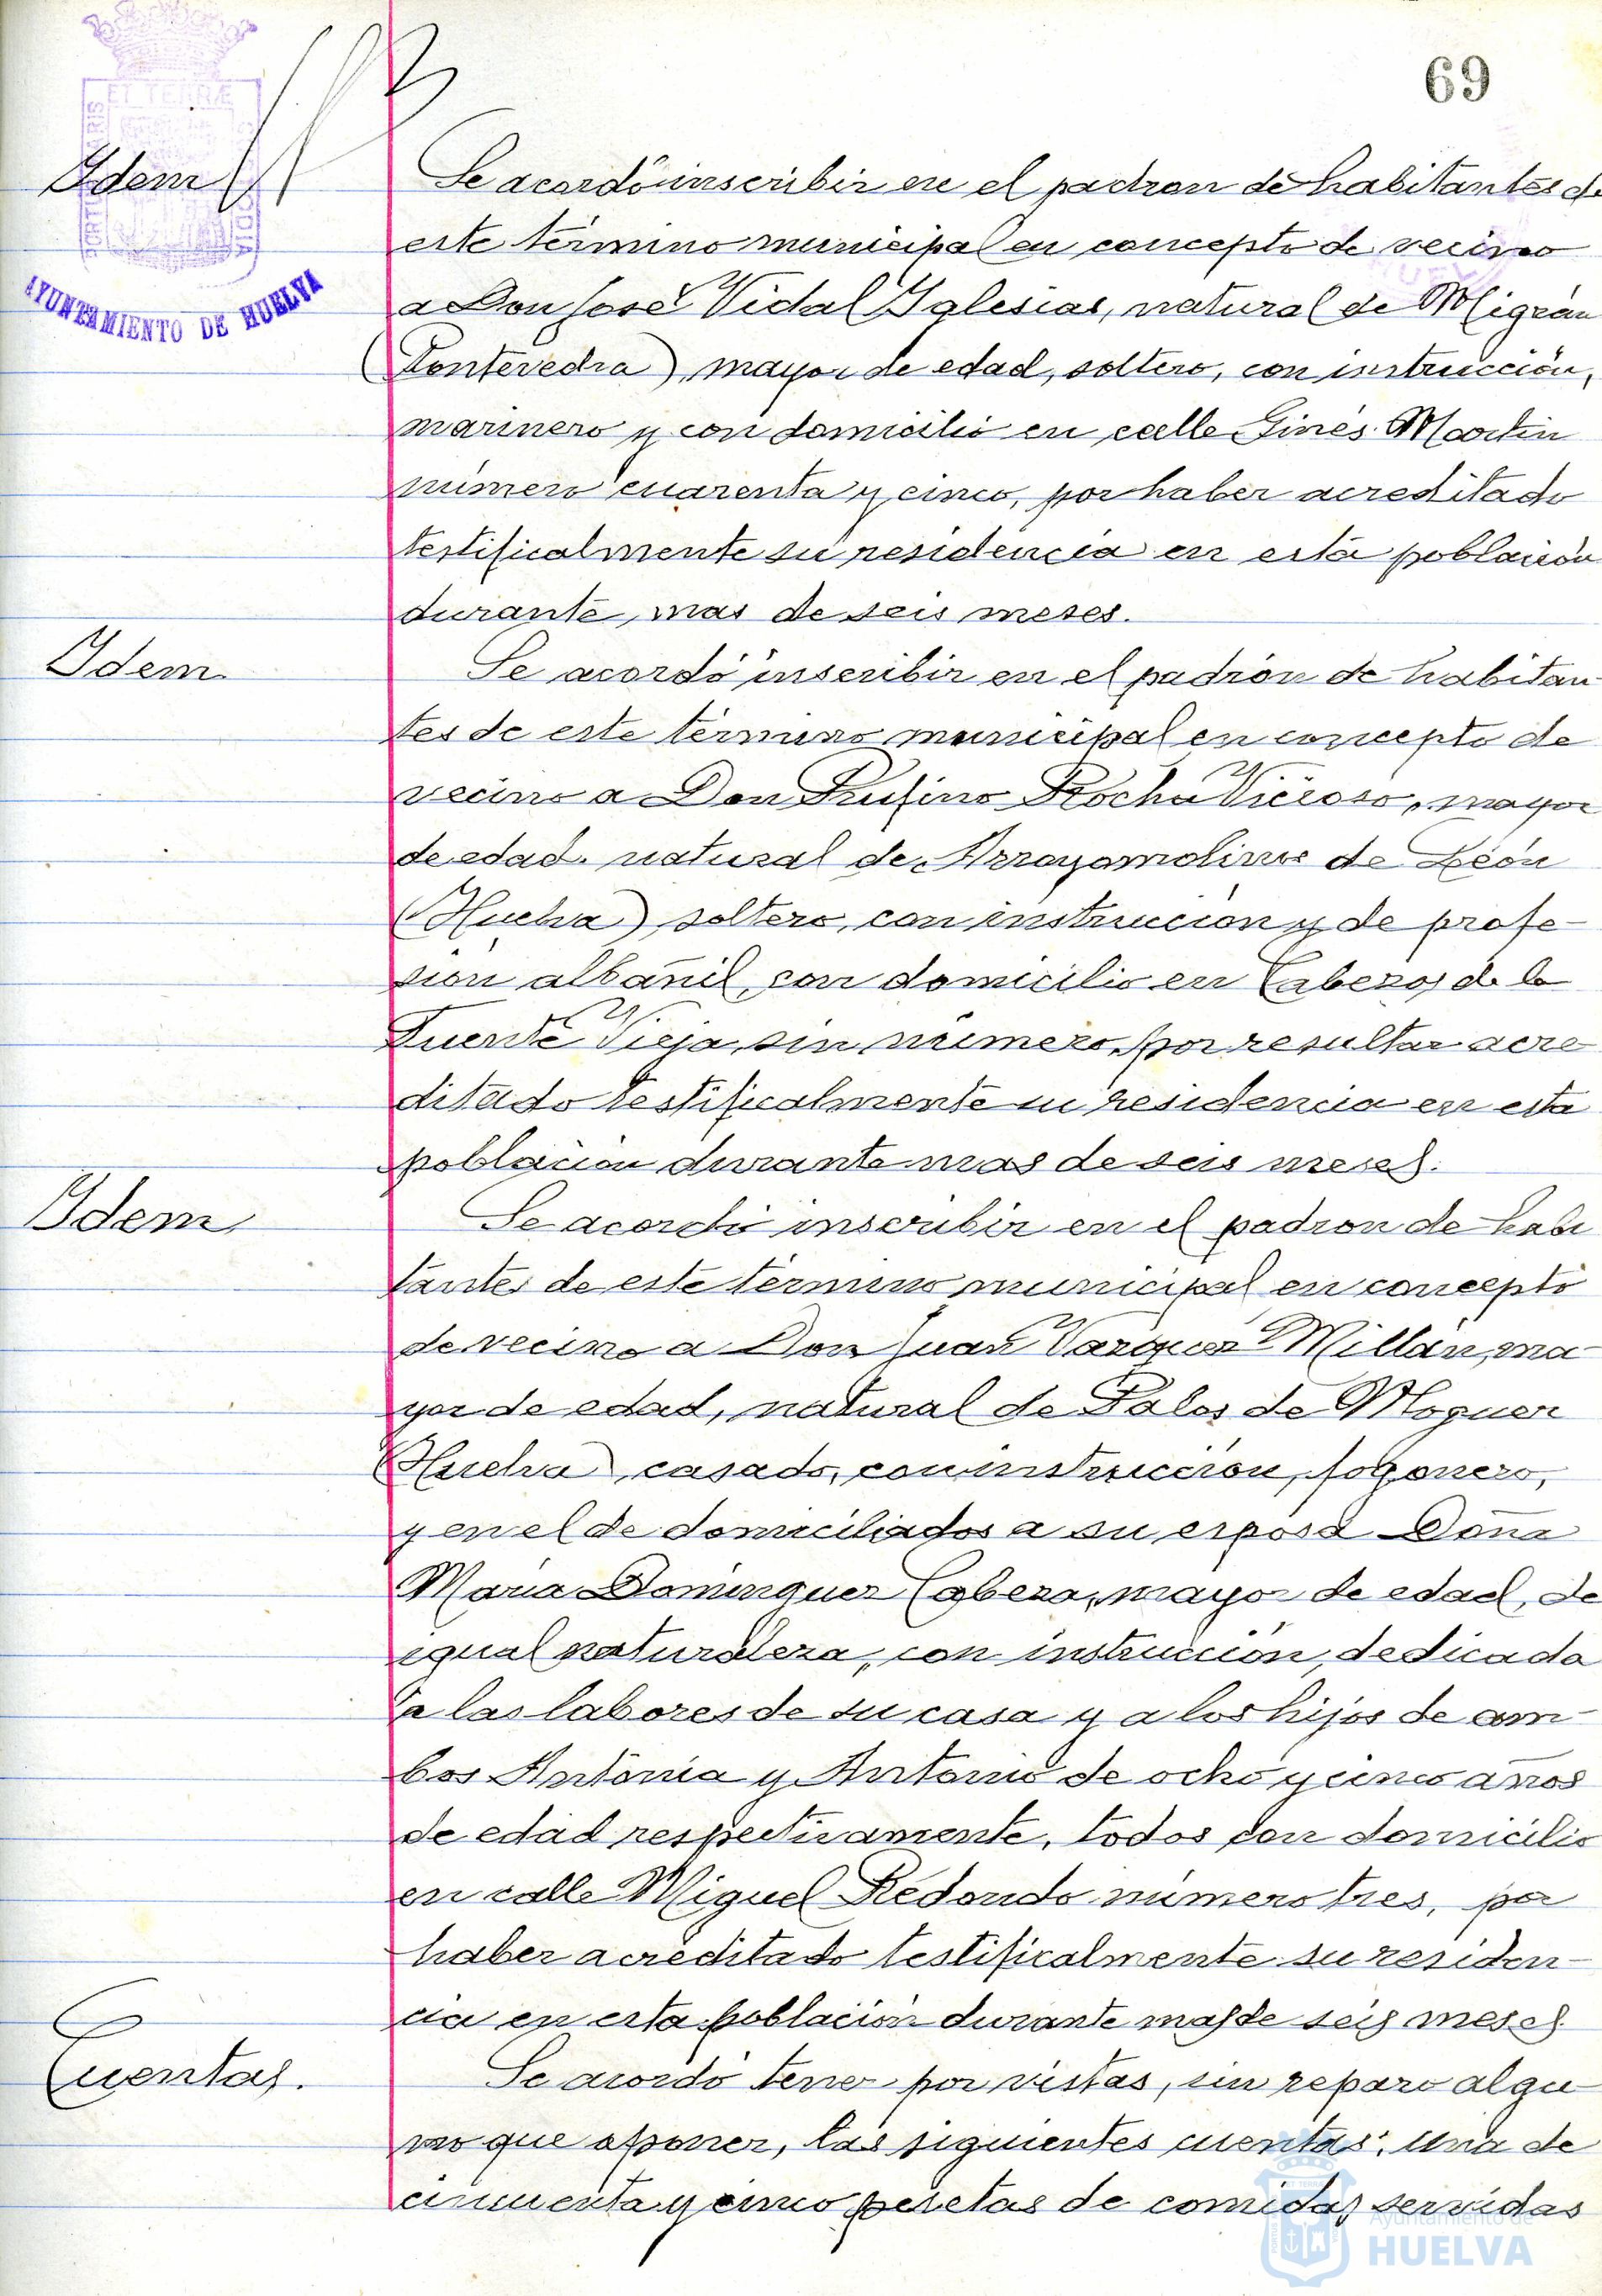 69
ET TERRÆ
AYUNTAMIENTO DE HUELVA
Idem
Se acordó inscribir en el padron de habitantes de
este término municipal en concepto de vecino
a Don José Vidal Iglesias, natural de Migran
(Pontevedra), mayor de edad, soltero, con instrucción,
marinero y con domicilio en calle Ginés Martin
número cuarenta y cinco, por haber acreditado
testificalmente su residencia en esta población
durante mas de seis meses.
Idem
Se acordó inscribir en el padrón de habitan-
tes de este término municipal en concepto de
vecino a Don Rufino Rocha Vicioso, mayor
de edad, natural de Arroyomolinos de León
(Huelva) soltero, con instruccion y de profe-
sion albañil, con domicilio en Cabezos de la
Fuente Vieja, sin número, por resultar acre
ditado testificalmente su residencia en esta
poblacion durante mas de seis meses.
Idem
Se acordó inscribir en el padron de habi
tantes de este término municipal en concepto
de vecino a Don Juan Vazquez Millán, ma-
yor de edad, natural de Palos de Moguer
(Huelva) casado, con instruccion, fogonero,
y en el de domiciliados a su esposa Doña
Maria Dominguez Cabeza, mayor de edad, de
igual naturaleza, con instruccion, dedicada
a las labores de su casa y a los hijos de am-
bos Antonia y Antonio de ocho y cinco años
de edad respectivamente, todos con domicilio
en calle Miguel Redondo número tres, por
haber acreditado testificalmente su residen-
cia en esta población durante mas de seis meses
Cuentas.
Se acordó tener por vistas, sin reparo algu-
no que oponer, las siguientes cuentas: Una de
cincuenta y cinco pesetas de comidas servidas
Ayuntamiento de
HUELVA